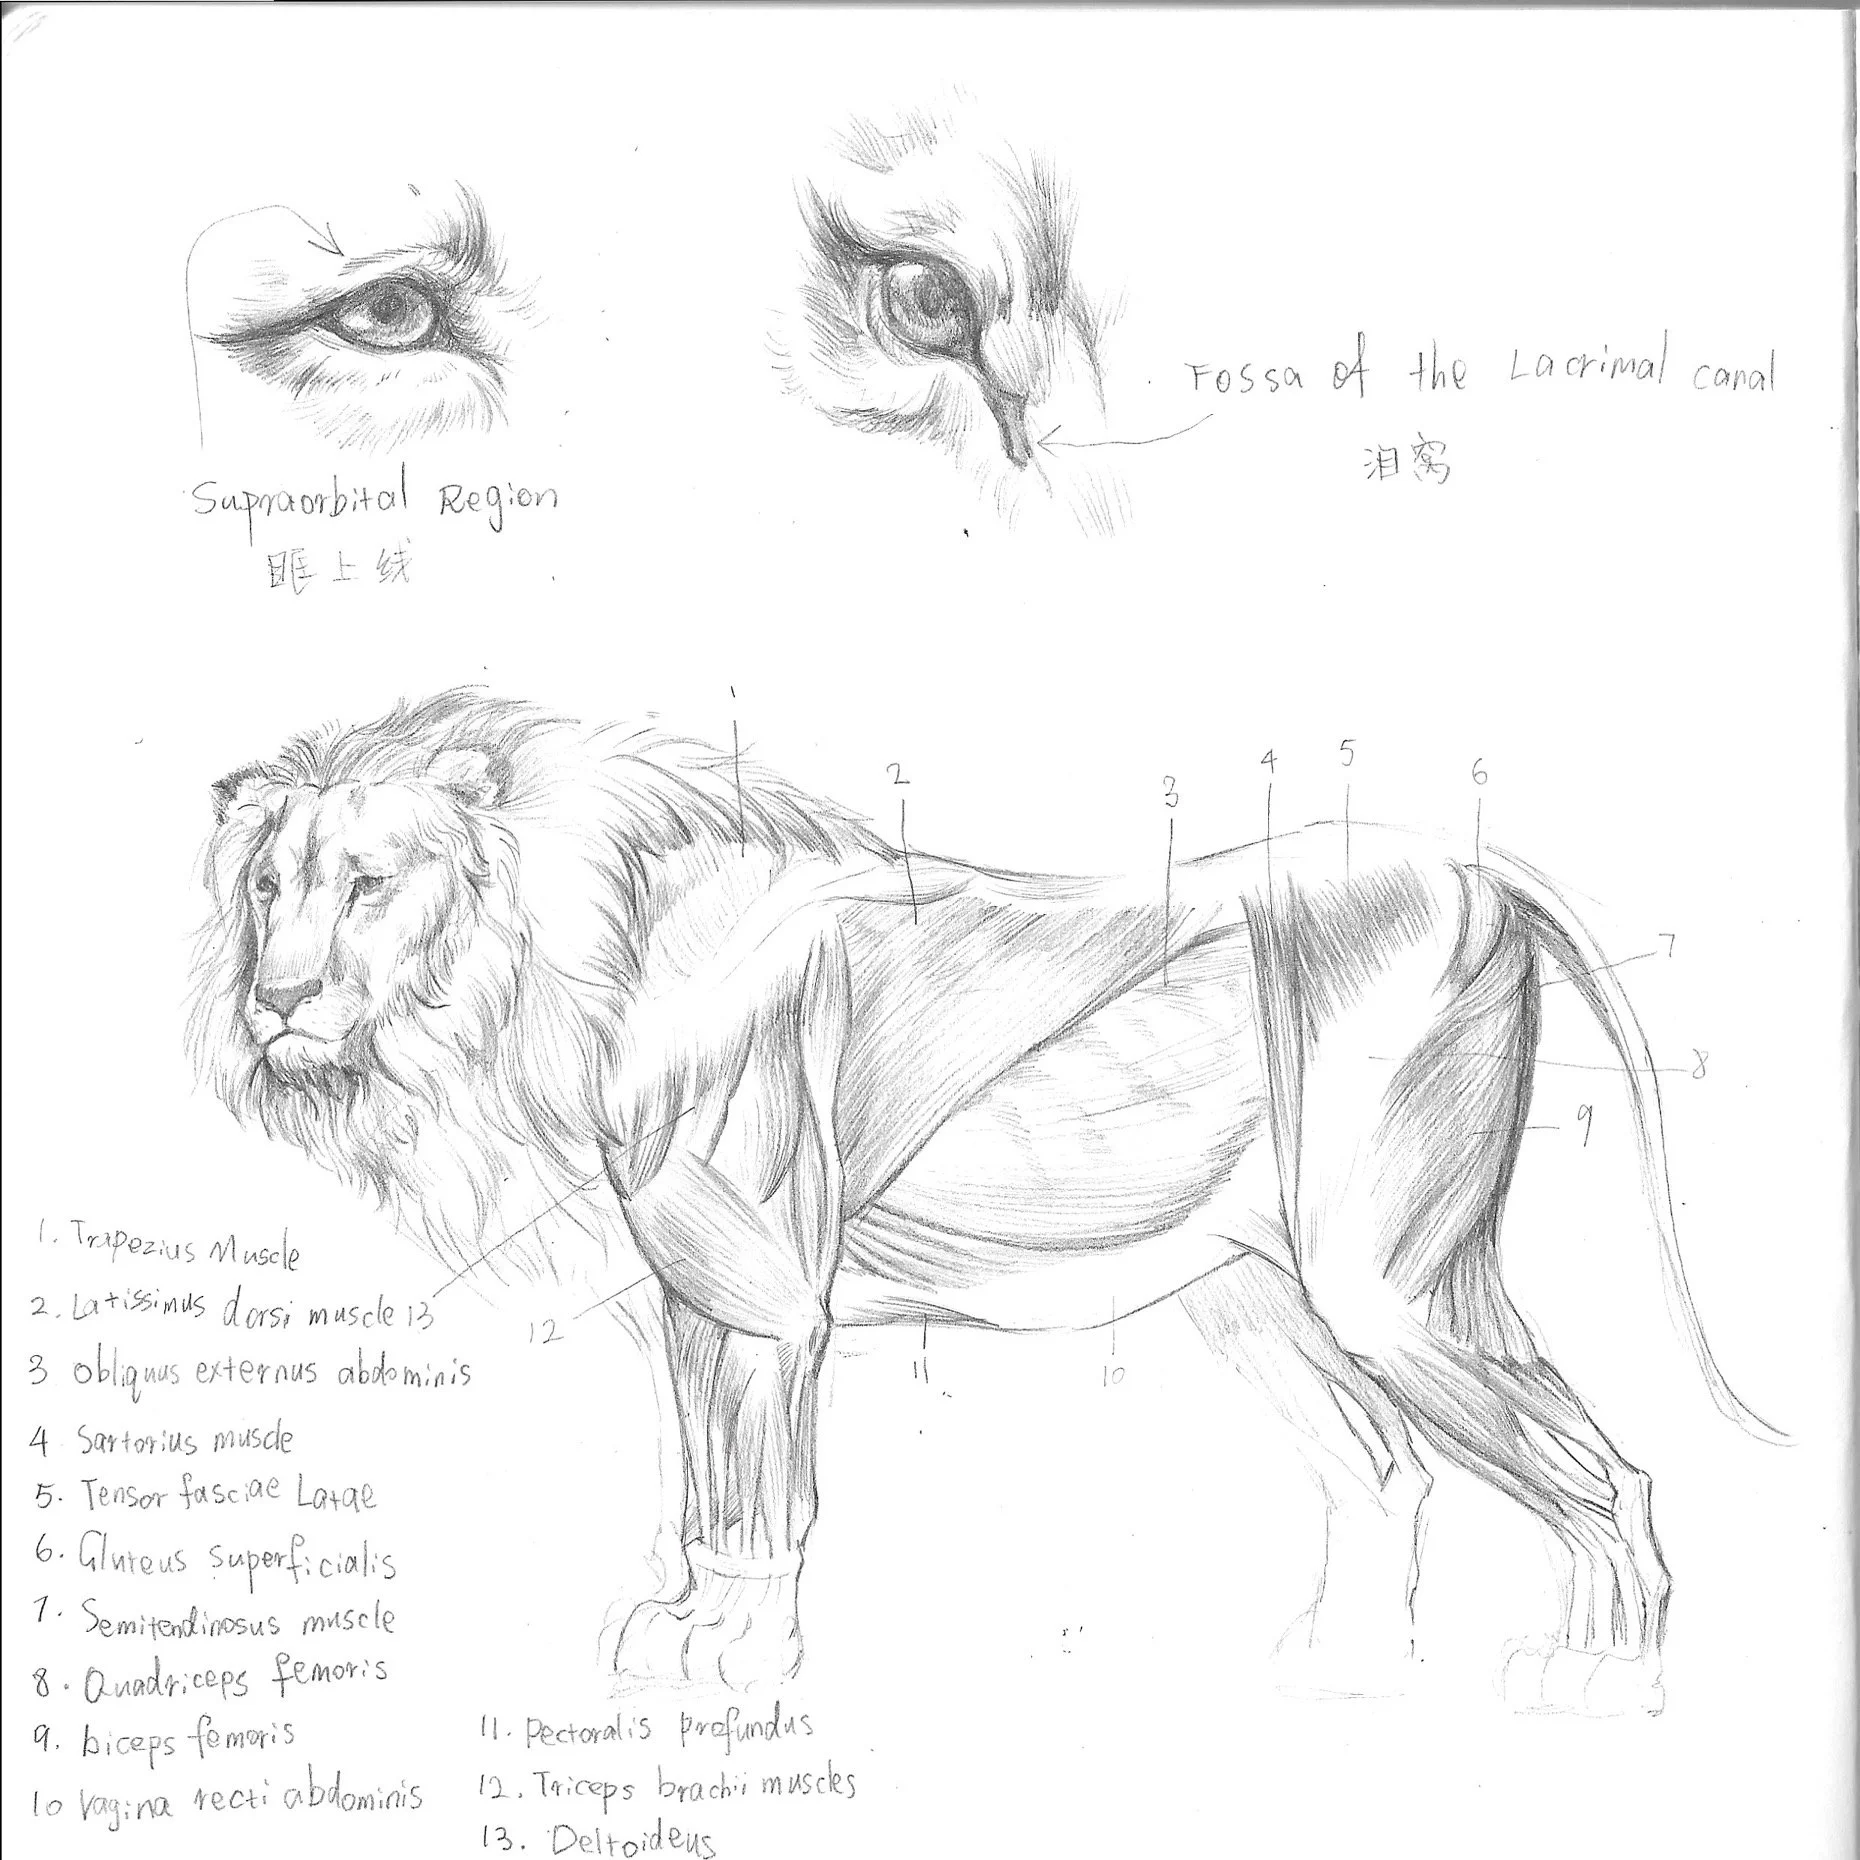 Fossa of the Lacrimal canal
泪窝
Supraorbital Region
眶上线
1
2
3
4
5
6
7
8
9
10
11
12
13
1. Trapezius Muscle
2. Latissimus dorsi muscle
3 Obliquus externus abdominis
4 Sartorius muscle
5. Tensor fasciae Latae
6. Gluteus superficialis
7. Semitendinosus muscle
8. Quadriceps femoris
9. biceps femoris
10 vagina recti abdominis
11. Pectoralis profundus
12. Triceps brachii muscles
13. Deltoideus